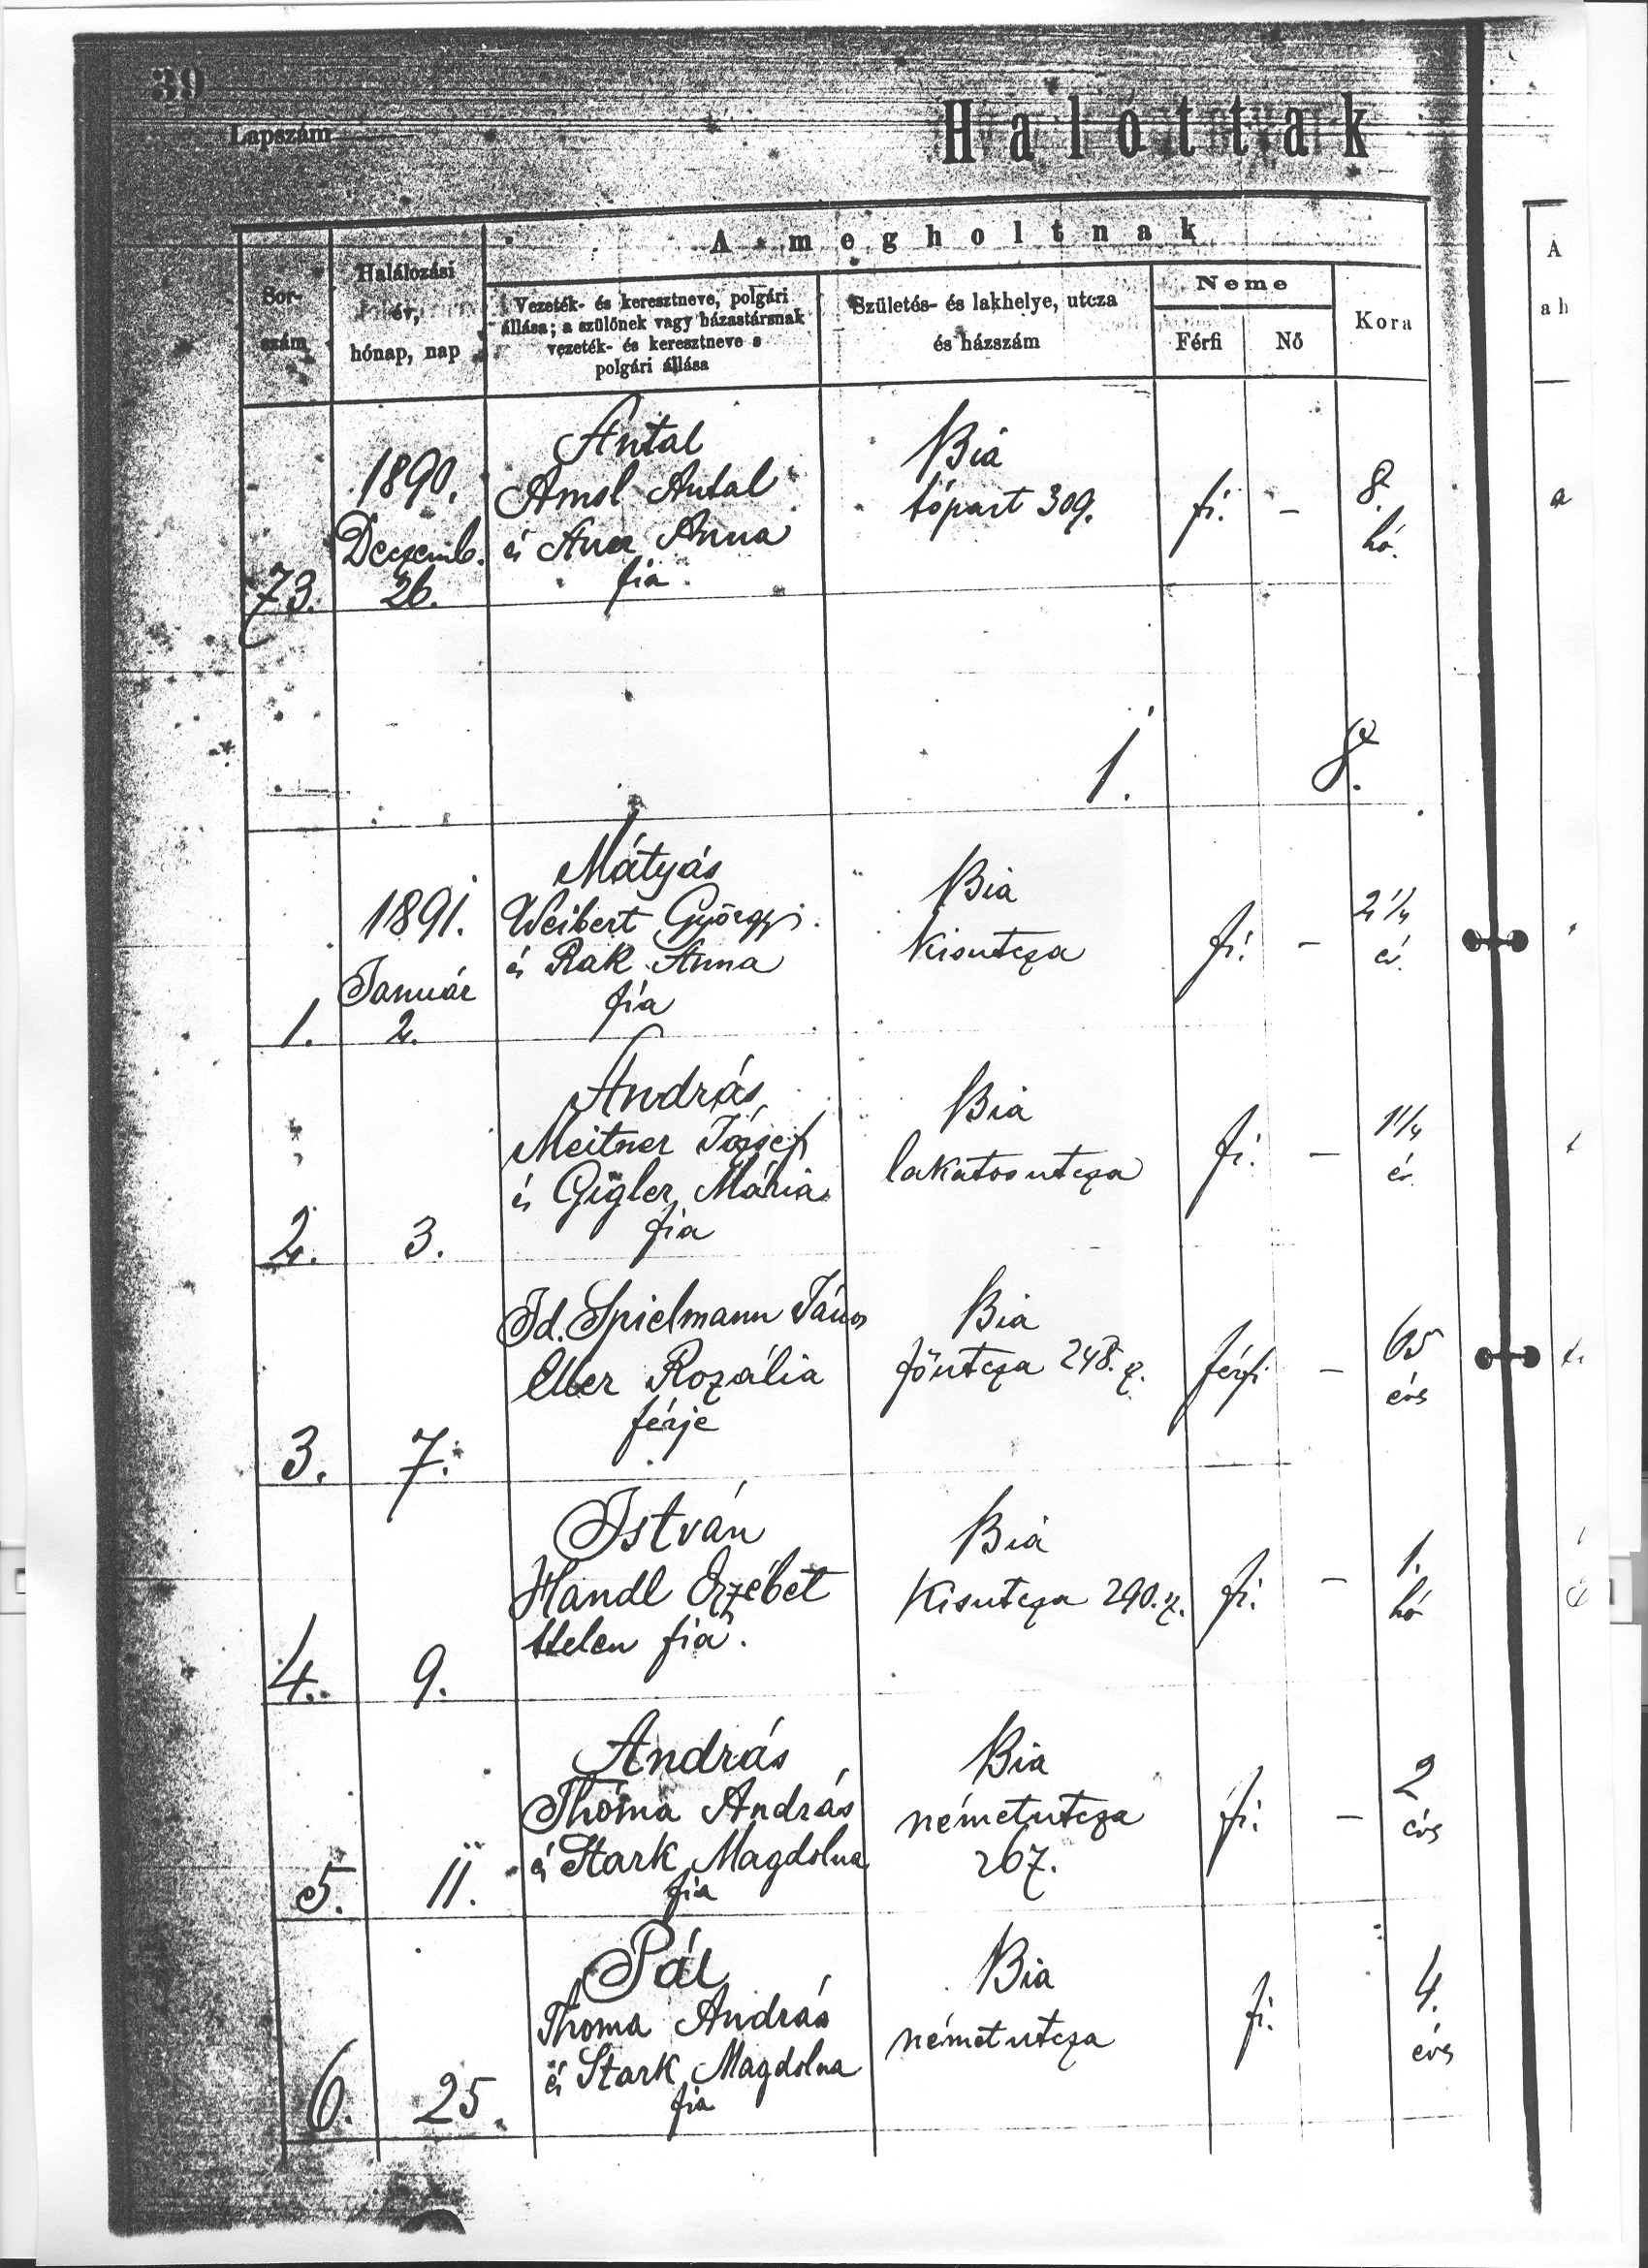 39
Lapszám
Halottak
A megholtnak
Sor-
szám
Halálozási
év,
hónap, nap
Vezeték- és keresztneve, polgári
állása; a szülőnek vagy házastársnak
vezeték- és keresztneve s
polgári állása
Születés- és lakhelye, utcza
és házszám
Neme
Férfi
Nő
Kora
73.
1890.
Deczemb.
26.
Antal
Amsl Antal
és Auer Anna
fia
Bia
tópart 309.
fi.
–
8.
hó.
1.
8.
1.
1891.
Január
2.
Mátyás
Weibert György
és Rak Anna
fia
Bia
Kisutcza
fi.
–
2 1/4
év.
2.
3.
András
Meitner József
és Gigler Mária
fia
Bia
lakatosutcza
fi.
–
1 1/4
év
3.
7.
Id. Spielmann János
Eller Rozália
férje
Bia
főutcza 248. z.
férfi
–
65
éves
4.
9.
István
Handl Erzsébet
fia.
Bia
Kisutcza 290. z.
fi.
–
1.
hó
5.
11.
András
Thoma András
és Stark Magdolna
fia
Bia
németutcza
267.
fi.
–
2
éves
6.
25.
Pál
Thoma András
és Stark Magdolna
fia
Bia
németutcza
fi.
4.
éves
A